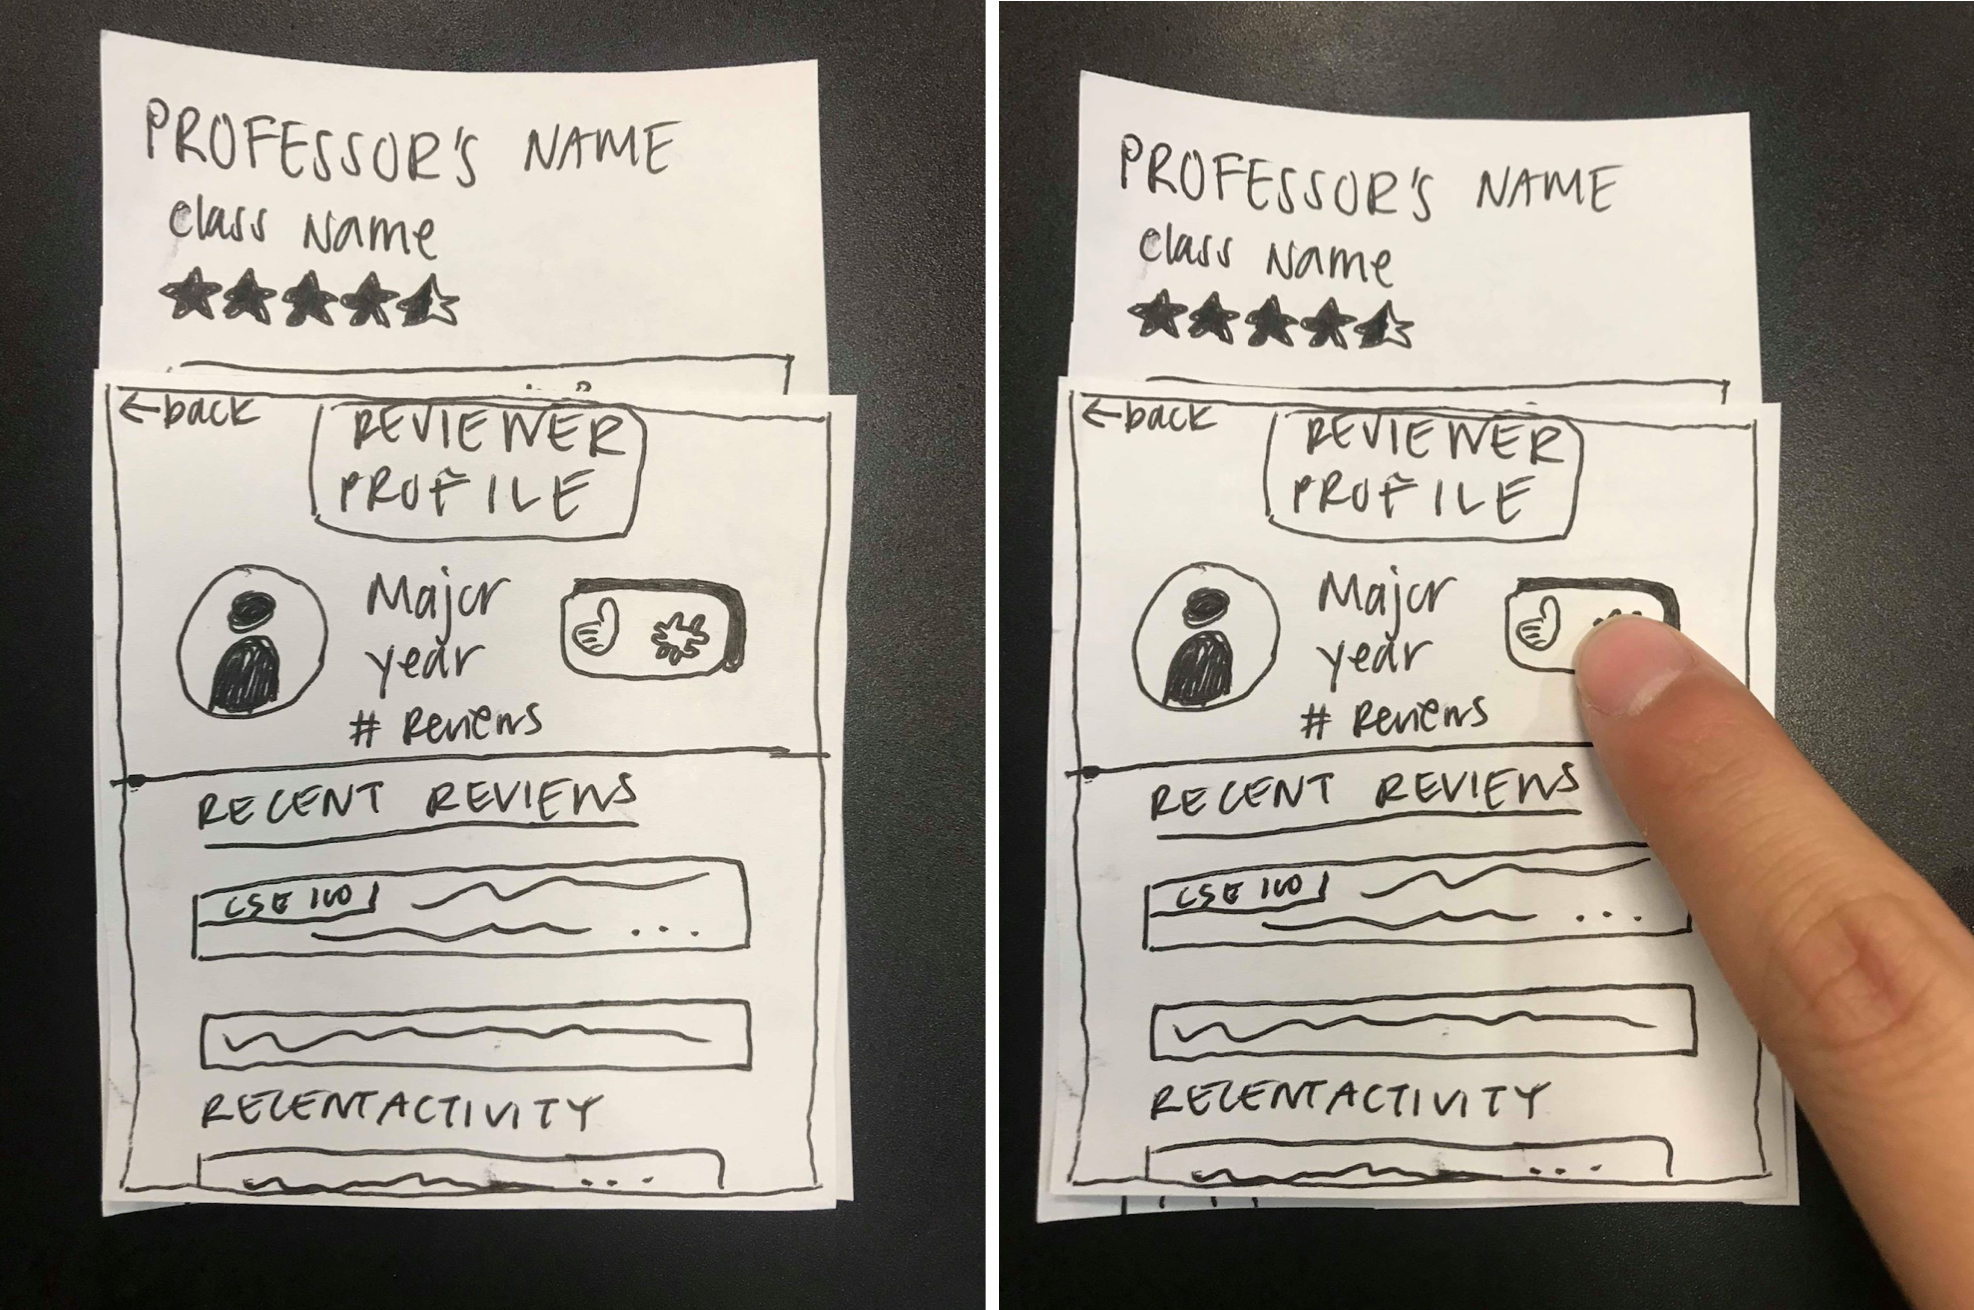 PROFESSOR'S NAME
Class Name
←back
REVIEWER
PROFILE
Major
year
# Reviews
RECENT REVIEWS
CSE 100
...
RECENT ACTIVITY
...
PROFESSOR'S NAME
Class Name
←back
REVIEWER
PROFILE
Major
year
# Reviews
RECENT REVIEWS
CSE 100
...
RECENT ACTIVITY
...